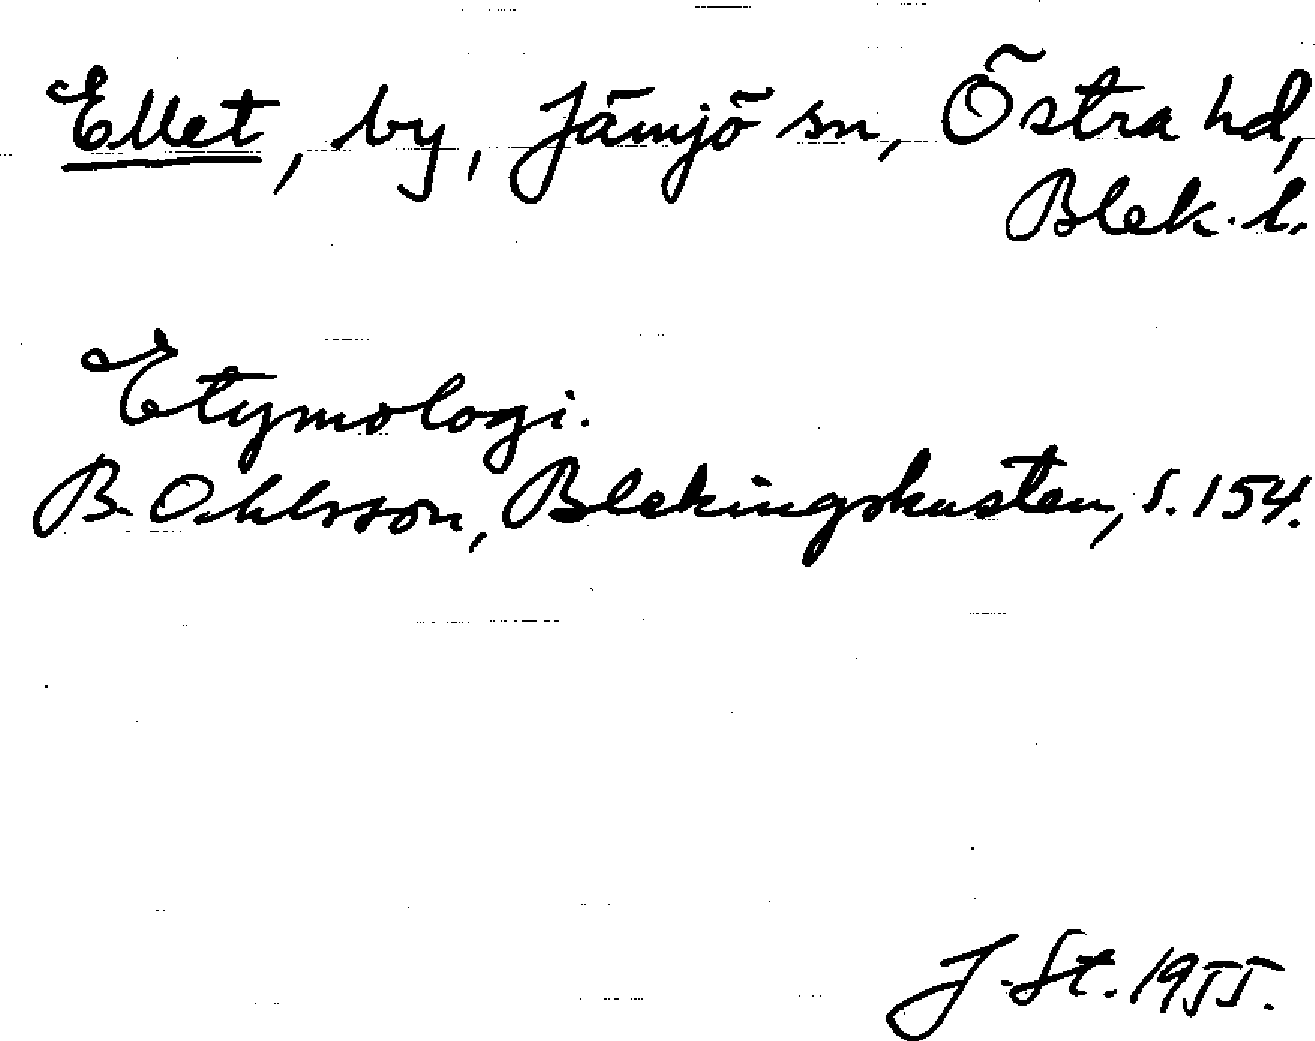 Ellet, by, Jämjö sn, Östra hd,
Blek. l.
Etymologi.
B. Ohlsson, Blekingskusten, s. 154.
J. St. 1955.